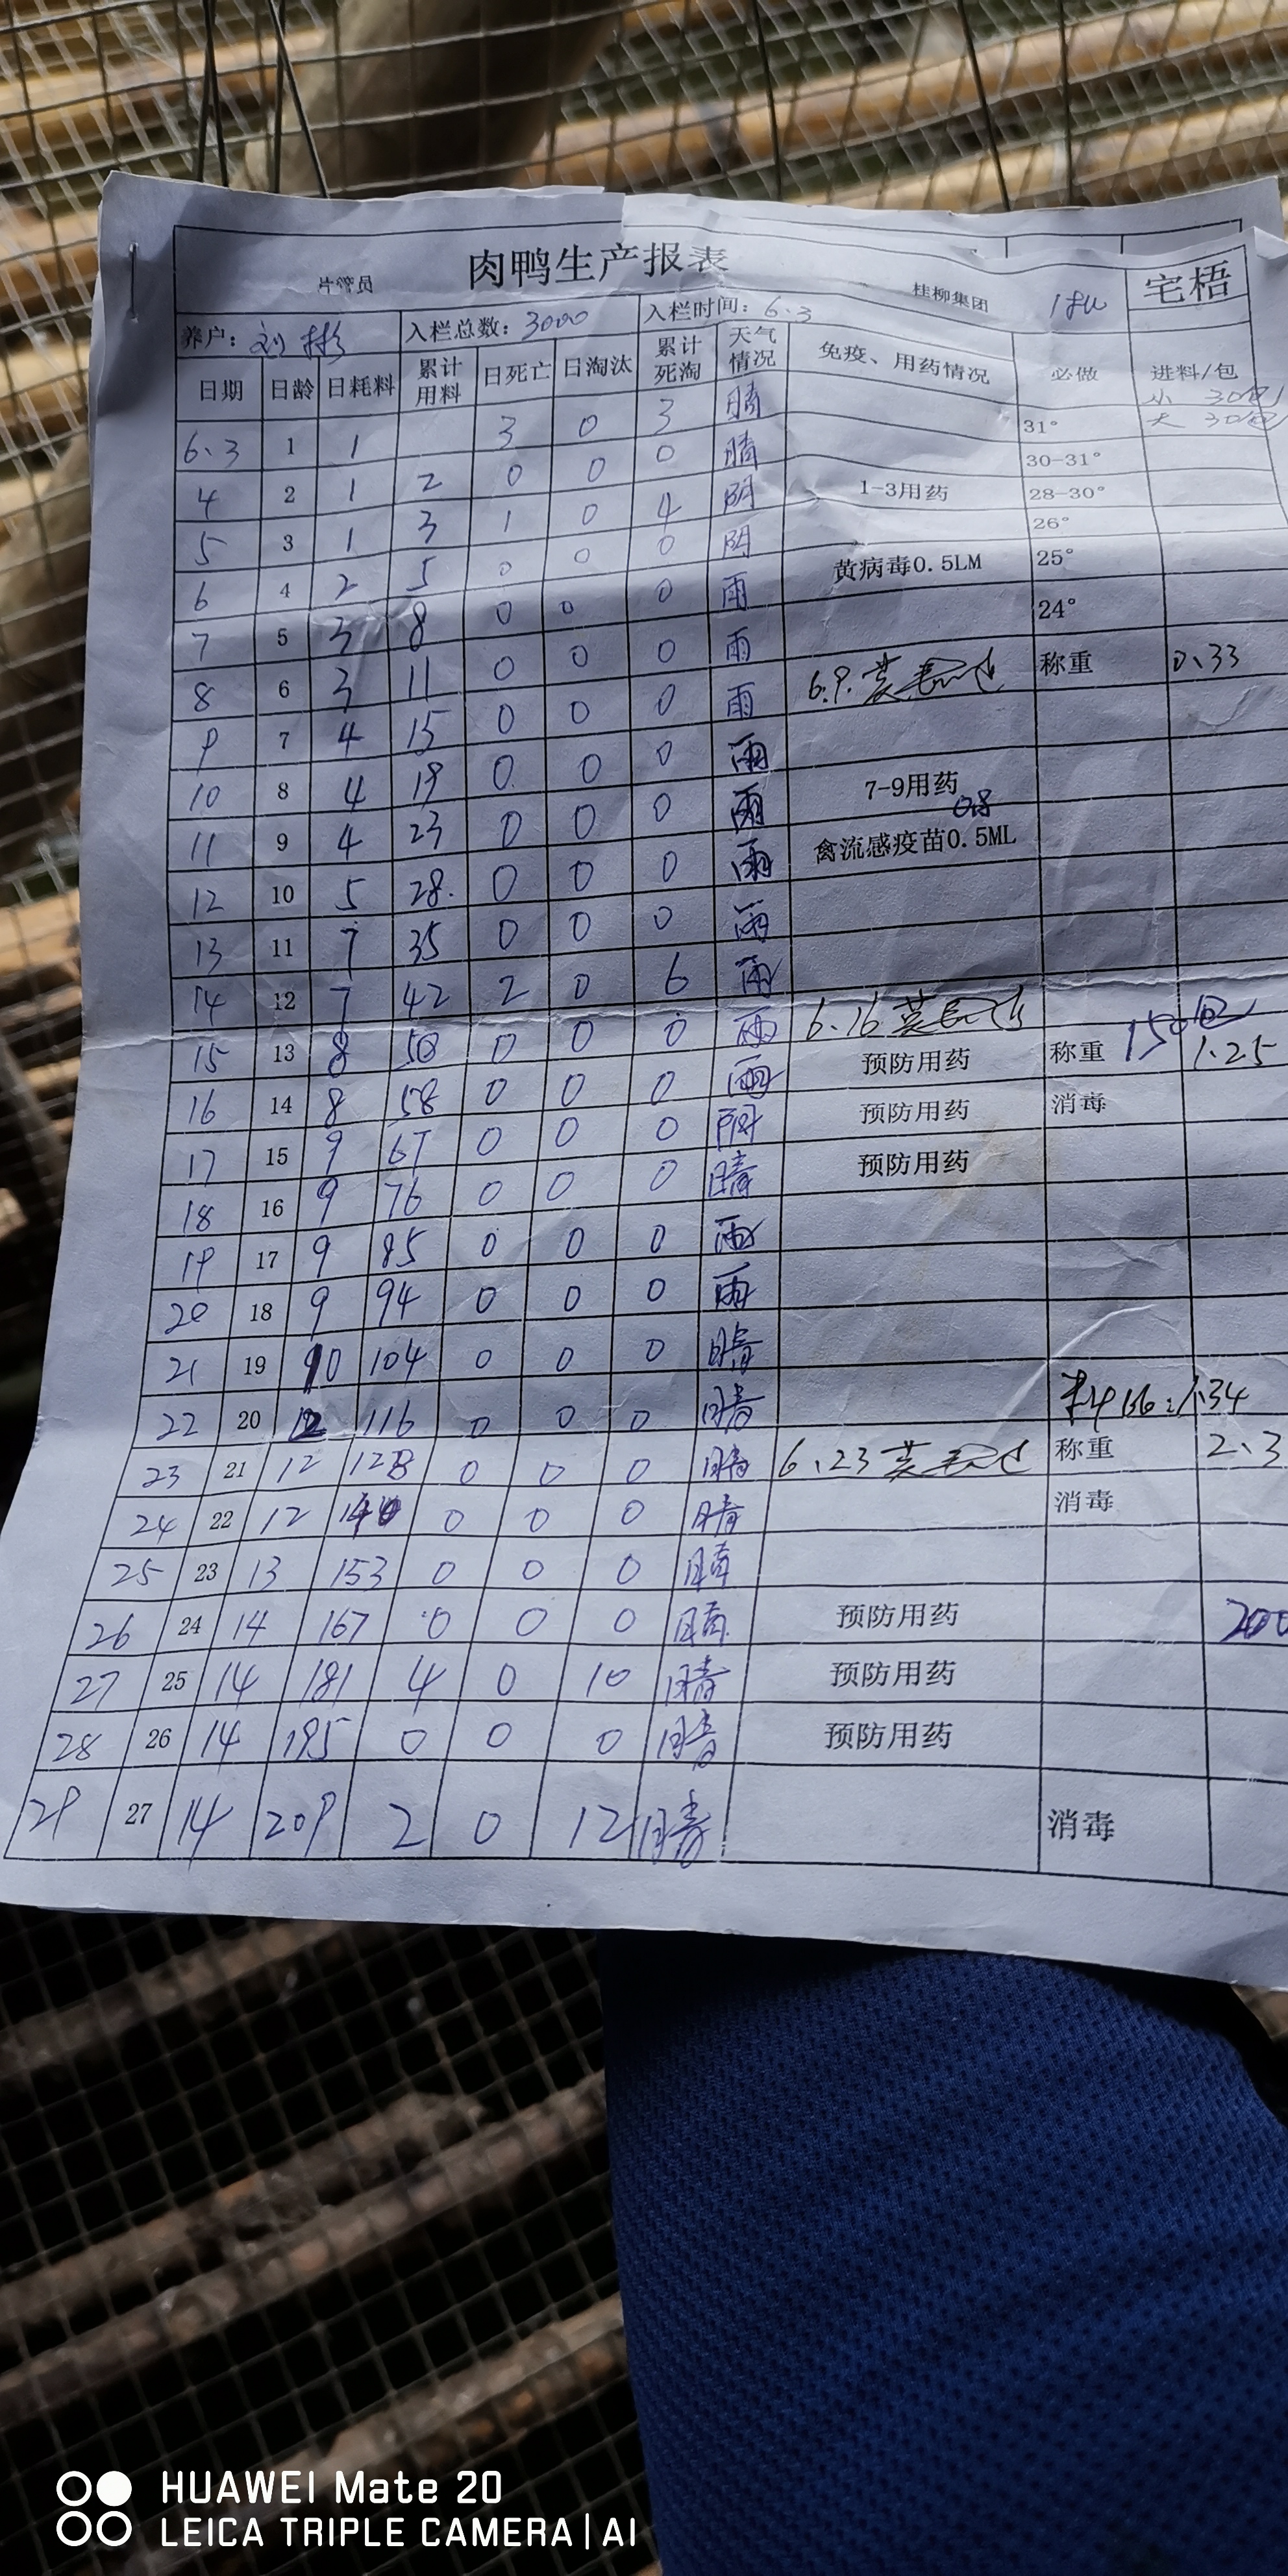 肉鸭生产报表
片管员 桂柳集团 宅梧
养户: 刘彬 入栏总数: 3000 入栏时间: 6.3
日期 日龄 日耗料 累计用料 日死亡 日淘汰 累计死淘 天气情况 免疫、用药情况 必做 进料/包
小 30包
大 30包
6.3 1 1 3 0 3 晴 31°
4 2 1 2 0 0 0 晴 30-31°
5 3 1 3 1 0 4 阴 1-3用药 28-30°
6 4 2 5 0 0 0 阴 26°
7 5 3 8 0 0 0 雨 黄病毒0.5LM 25°
8 6 3 11 0 0 0 雨 24°
9 7 4 15 0 0 0 雨 6.9. 称重 0.33
10 8 4 19 0 0 0 雨
11 9 4 23 0 0 0 雨 7-9用药
12 10 5 28. 0 0 0 雨 禽流感疫苗0.5ML
13 11 7 35 0 0 0 雨
14 12 7 42 2 0 6 雨
15 13 8 50 0 0 0 雨 6.16 150包
16 14 8 58 0 0 0 雨 预防用药 称重 1.25
17 15 9 67 0 0 0 阴 预防用药 消毒
18 16 9 76 0 0 0 晴 预防用药
19 17 9 85 0 0 0 雨
20 18 9 94 0 0 0 雨
21 19 10 104 0 0 0 晴
22 20 12 116 0 0 0 晴 料比:1.34
23 21 12 128 0 0 0 晴 6.23 称重 2.3
24 22 12 140 0 0 0 晴 消毒
25 23 13 153 0 0 0 晴
26 24 14 167 0 0 0 晴 预防用药 200
27 25 14 181 4 0 10 晴 预防用药
28 26 14 195 0 0 0 晴 预防用药
29 27 14 209 2 0 12 晴 消毒
HUAWEI Mate 20
LEICA TRIPLE CAMERA | AI